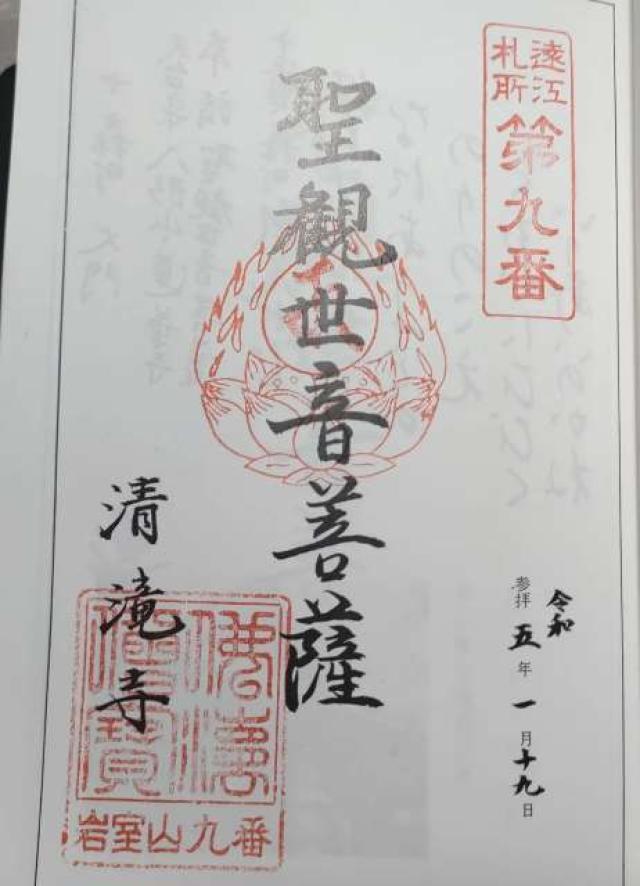 遠江
札所
第九番
聖観世音菩薩
令和
参拝五年一月十九日
清滝寺
佛法
僧寳
岩室山九番